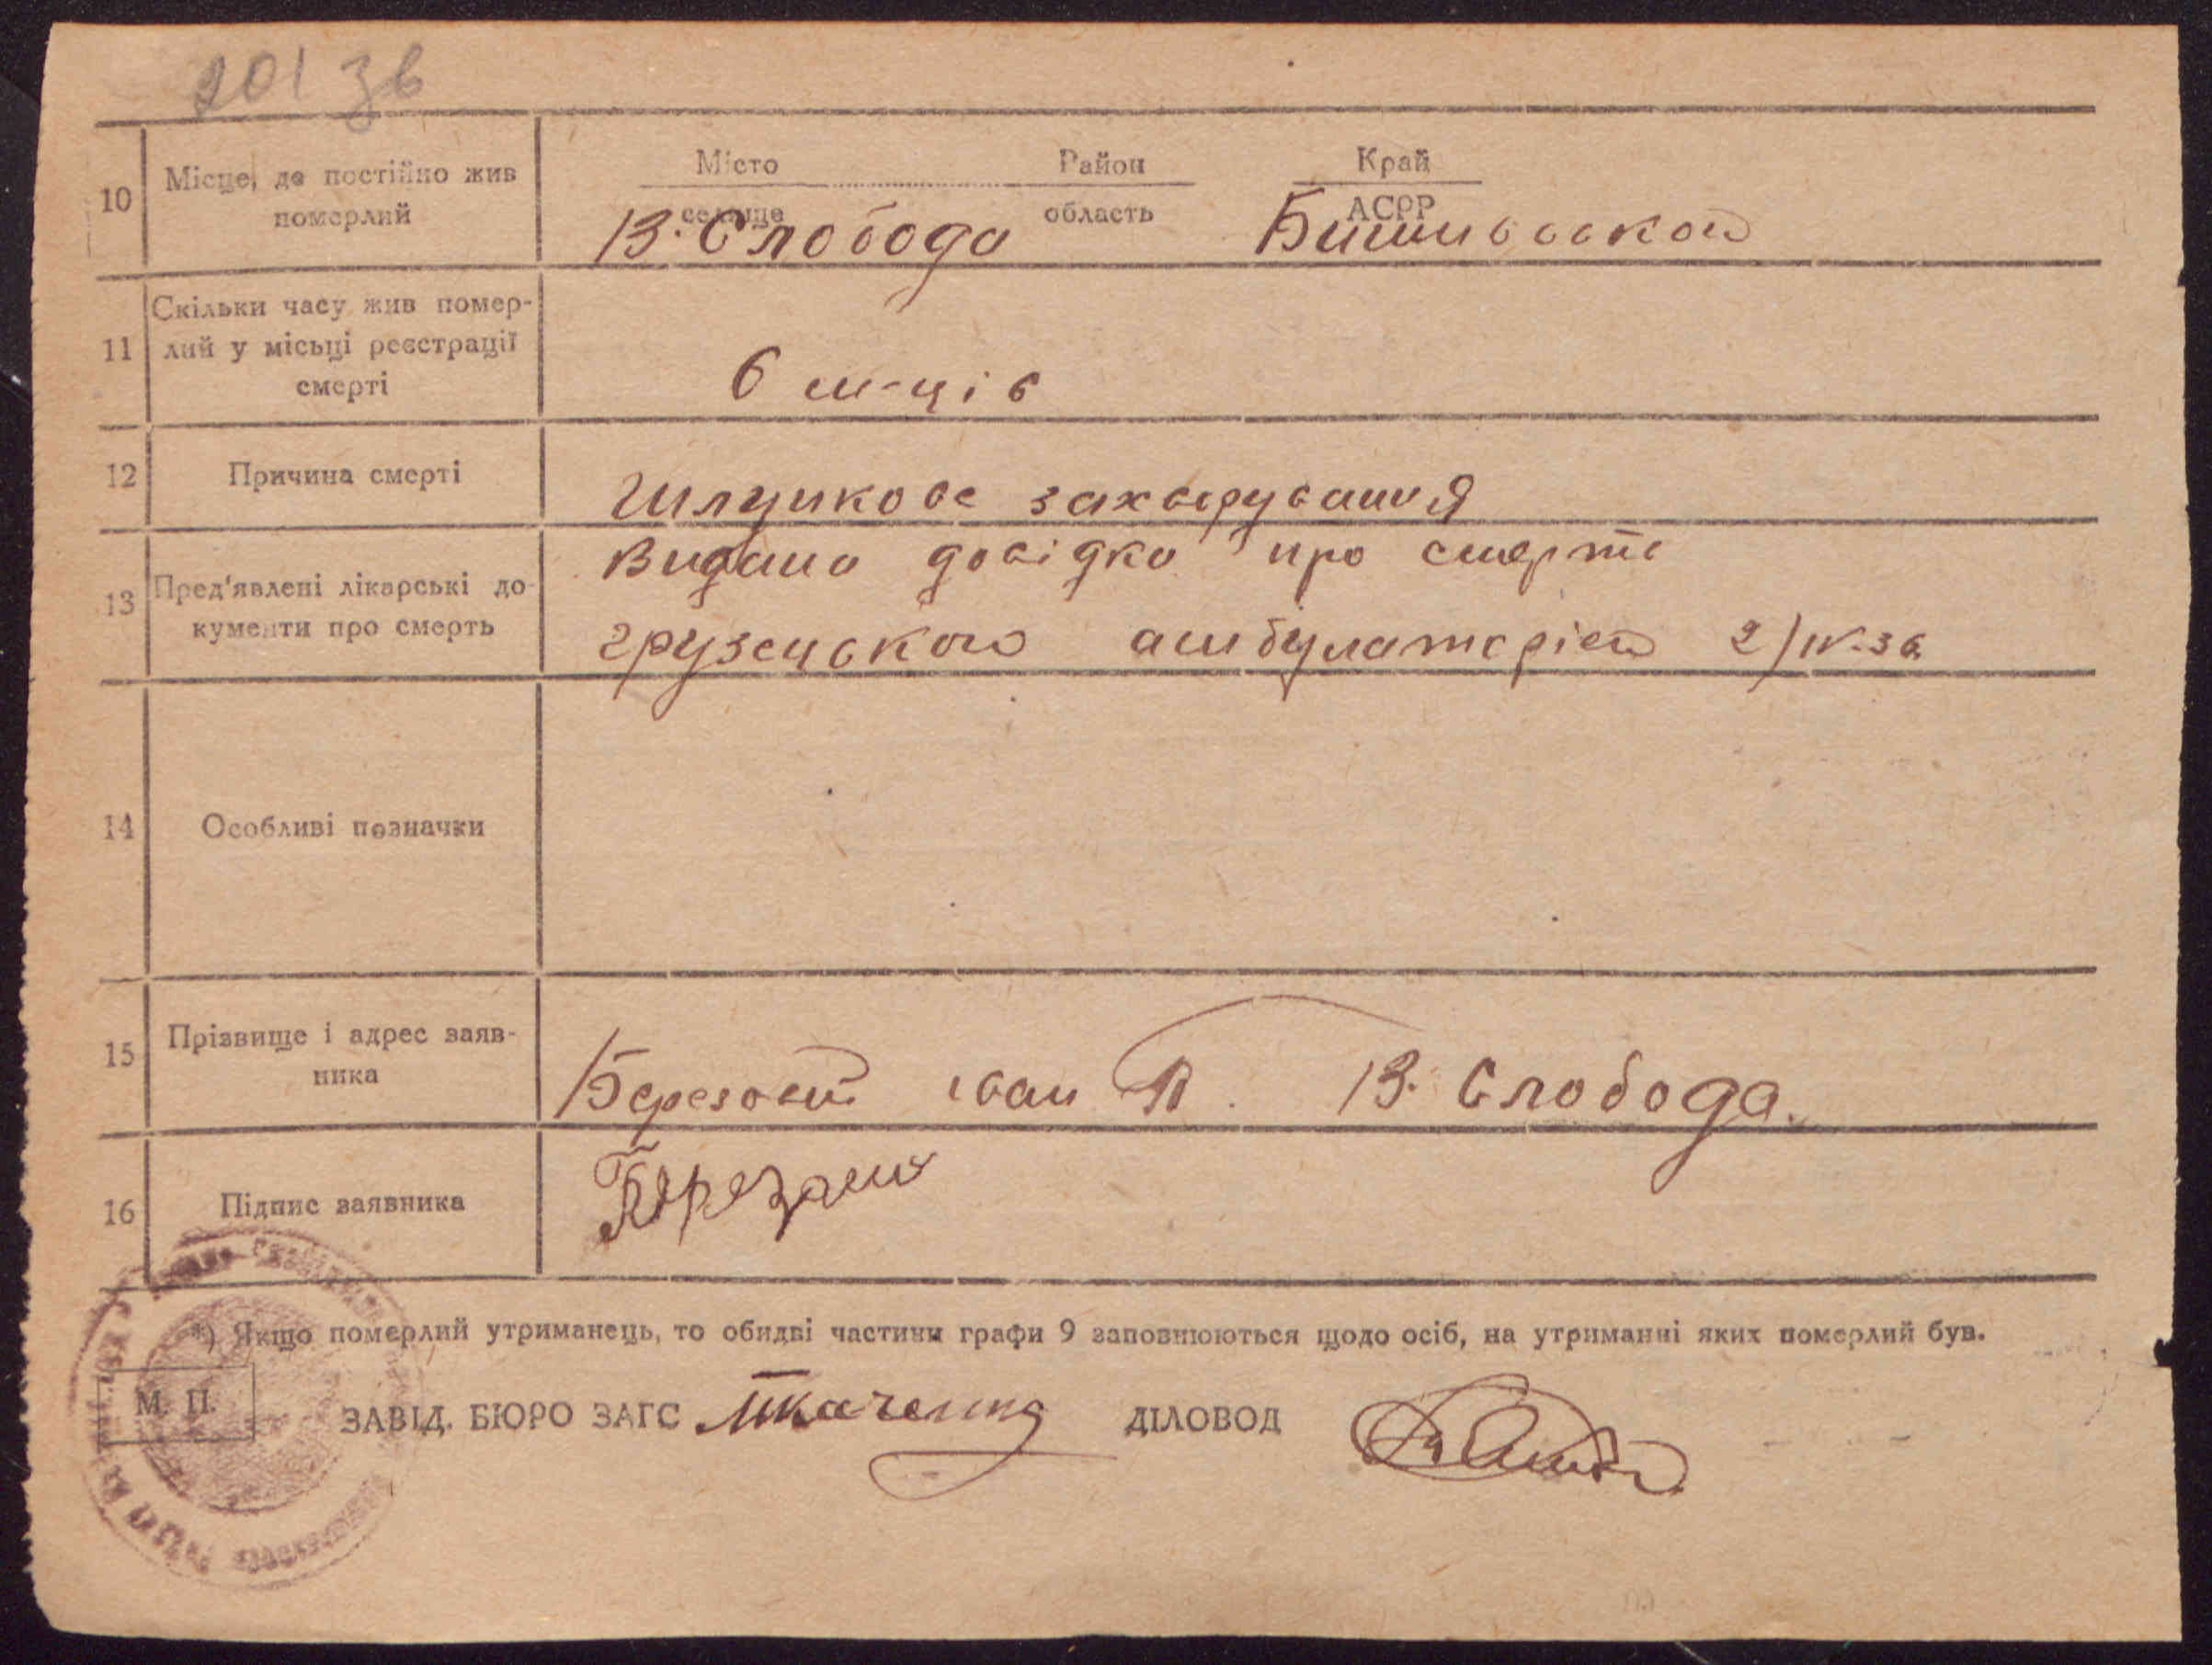 201 зв
10 Місце, де постійно жив померлий
Місто Район Край
селище область АСРР
В. Слобода
11 Скільки часу жив помер-
лий у місьці реєстрації
смерті
6 м-ців
12 Причина смерті
Шлункове захварування
13 Пред'явлені лікарські до-
кументи про смерть
Видана довідка про смерть
грузенською амбулаторією 2/IV-36
14 Особливі позначки
15 Прізвище і адрес заяв-
ника
іван П. В. Слобода.
16 Підпис заявника
*) Якщо померлий утриманець, то обидві частини графи 9 заповнюються щодо осіб, на утриманні яких померлий був.
М. П.
ЗАВІД. БЮРО ЗАГС Ткаченко ДІЛОВОД